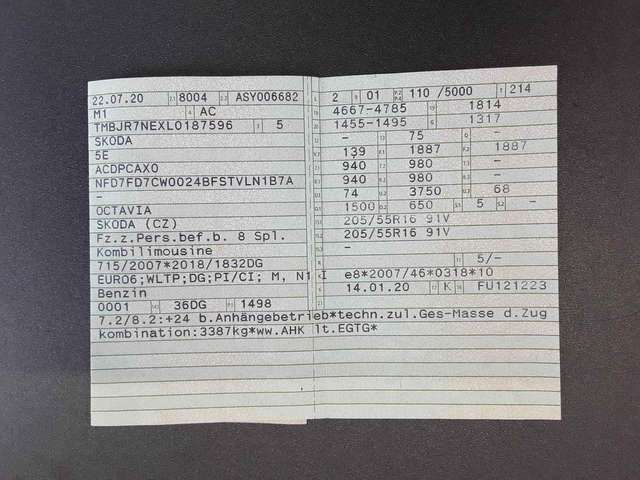 22.07.20 8004 ASY006682
M1 AC
TMBJR7NEXL0187596 5
SKODA
5E
ACDPCAX0
NFD7FD7CW0024BFSTVLN1B7A
-
OCTAVIA
SKODA (CZ)
Fz.z.Pers.bef.b. 8 Spl.
Kombilimousine
715/2007*2018/1832DG
EURO6;WLTP;DG;PI/CI; M, N1 I
Benzin
0001 36DG 1498
2 01 110 /5000 214
4667-4785 1814
1455-1495 1317
- 75 -
139 1887 1887
940 980 -
940 980 -
74 3750 68
1500 650 5 -
205/55R16 91V
205/55R16 91V
-
5/-
e8*2007/46*0318*10
14.01.20 K FU121223
7.2/8.2:+24 b.Anhängebetrieb*techn.zul.Ges-Masse d.Zug
kombination:3387kg*ww.AHK lt.EGTG*